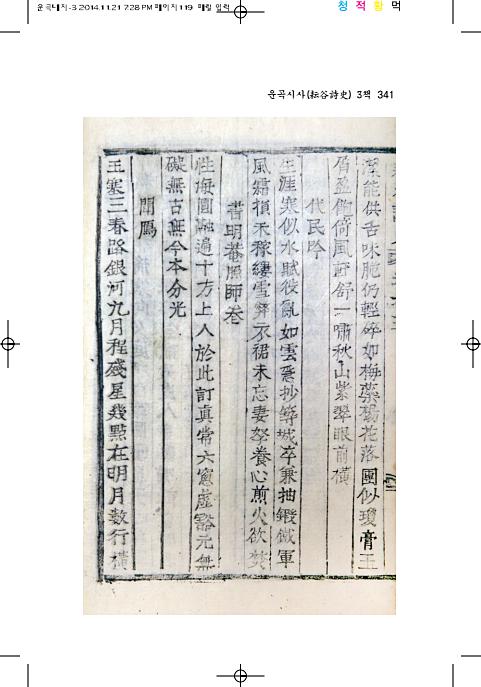 운곡내지-3 2014.11.21 7:28 PM 페이지119 매킬 일력
청 적 황 먹
운곡시사(耘谷詩史) 3책 341
潔能供舌味肥仍輕 如梅藥楊花落國似瓊膏玉
眉 風 舒一嘯秋山紫翠眼前橫
代民吟
生涯寒似水賦役亂如雲急抄築城卒兼抽鍛鐵軍
風霜損禾稼縷雪弊衣裙未忘妻孥養心煎火欲焚
書明菴照師卷
性海圓融遍十方上人於此訂真常六窓虛豁元無
礙無古無今本分光
聞鴈
玉塞三春路銀河九月程殘星幾點在明月數行橫